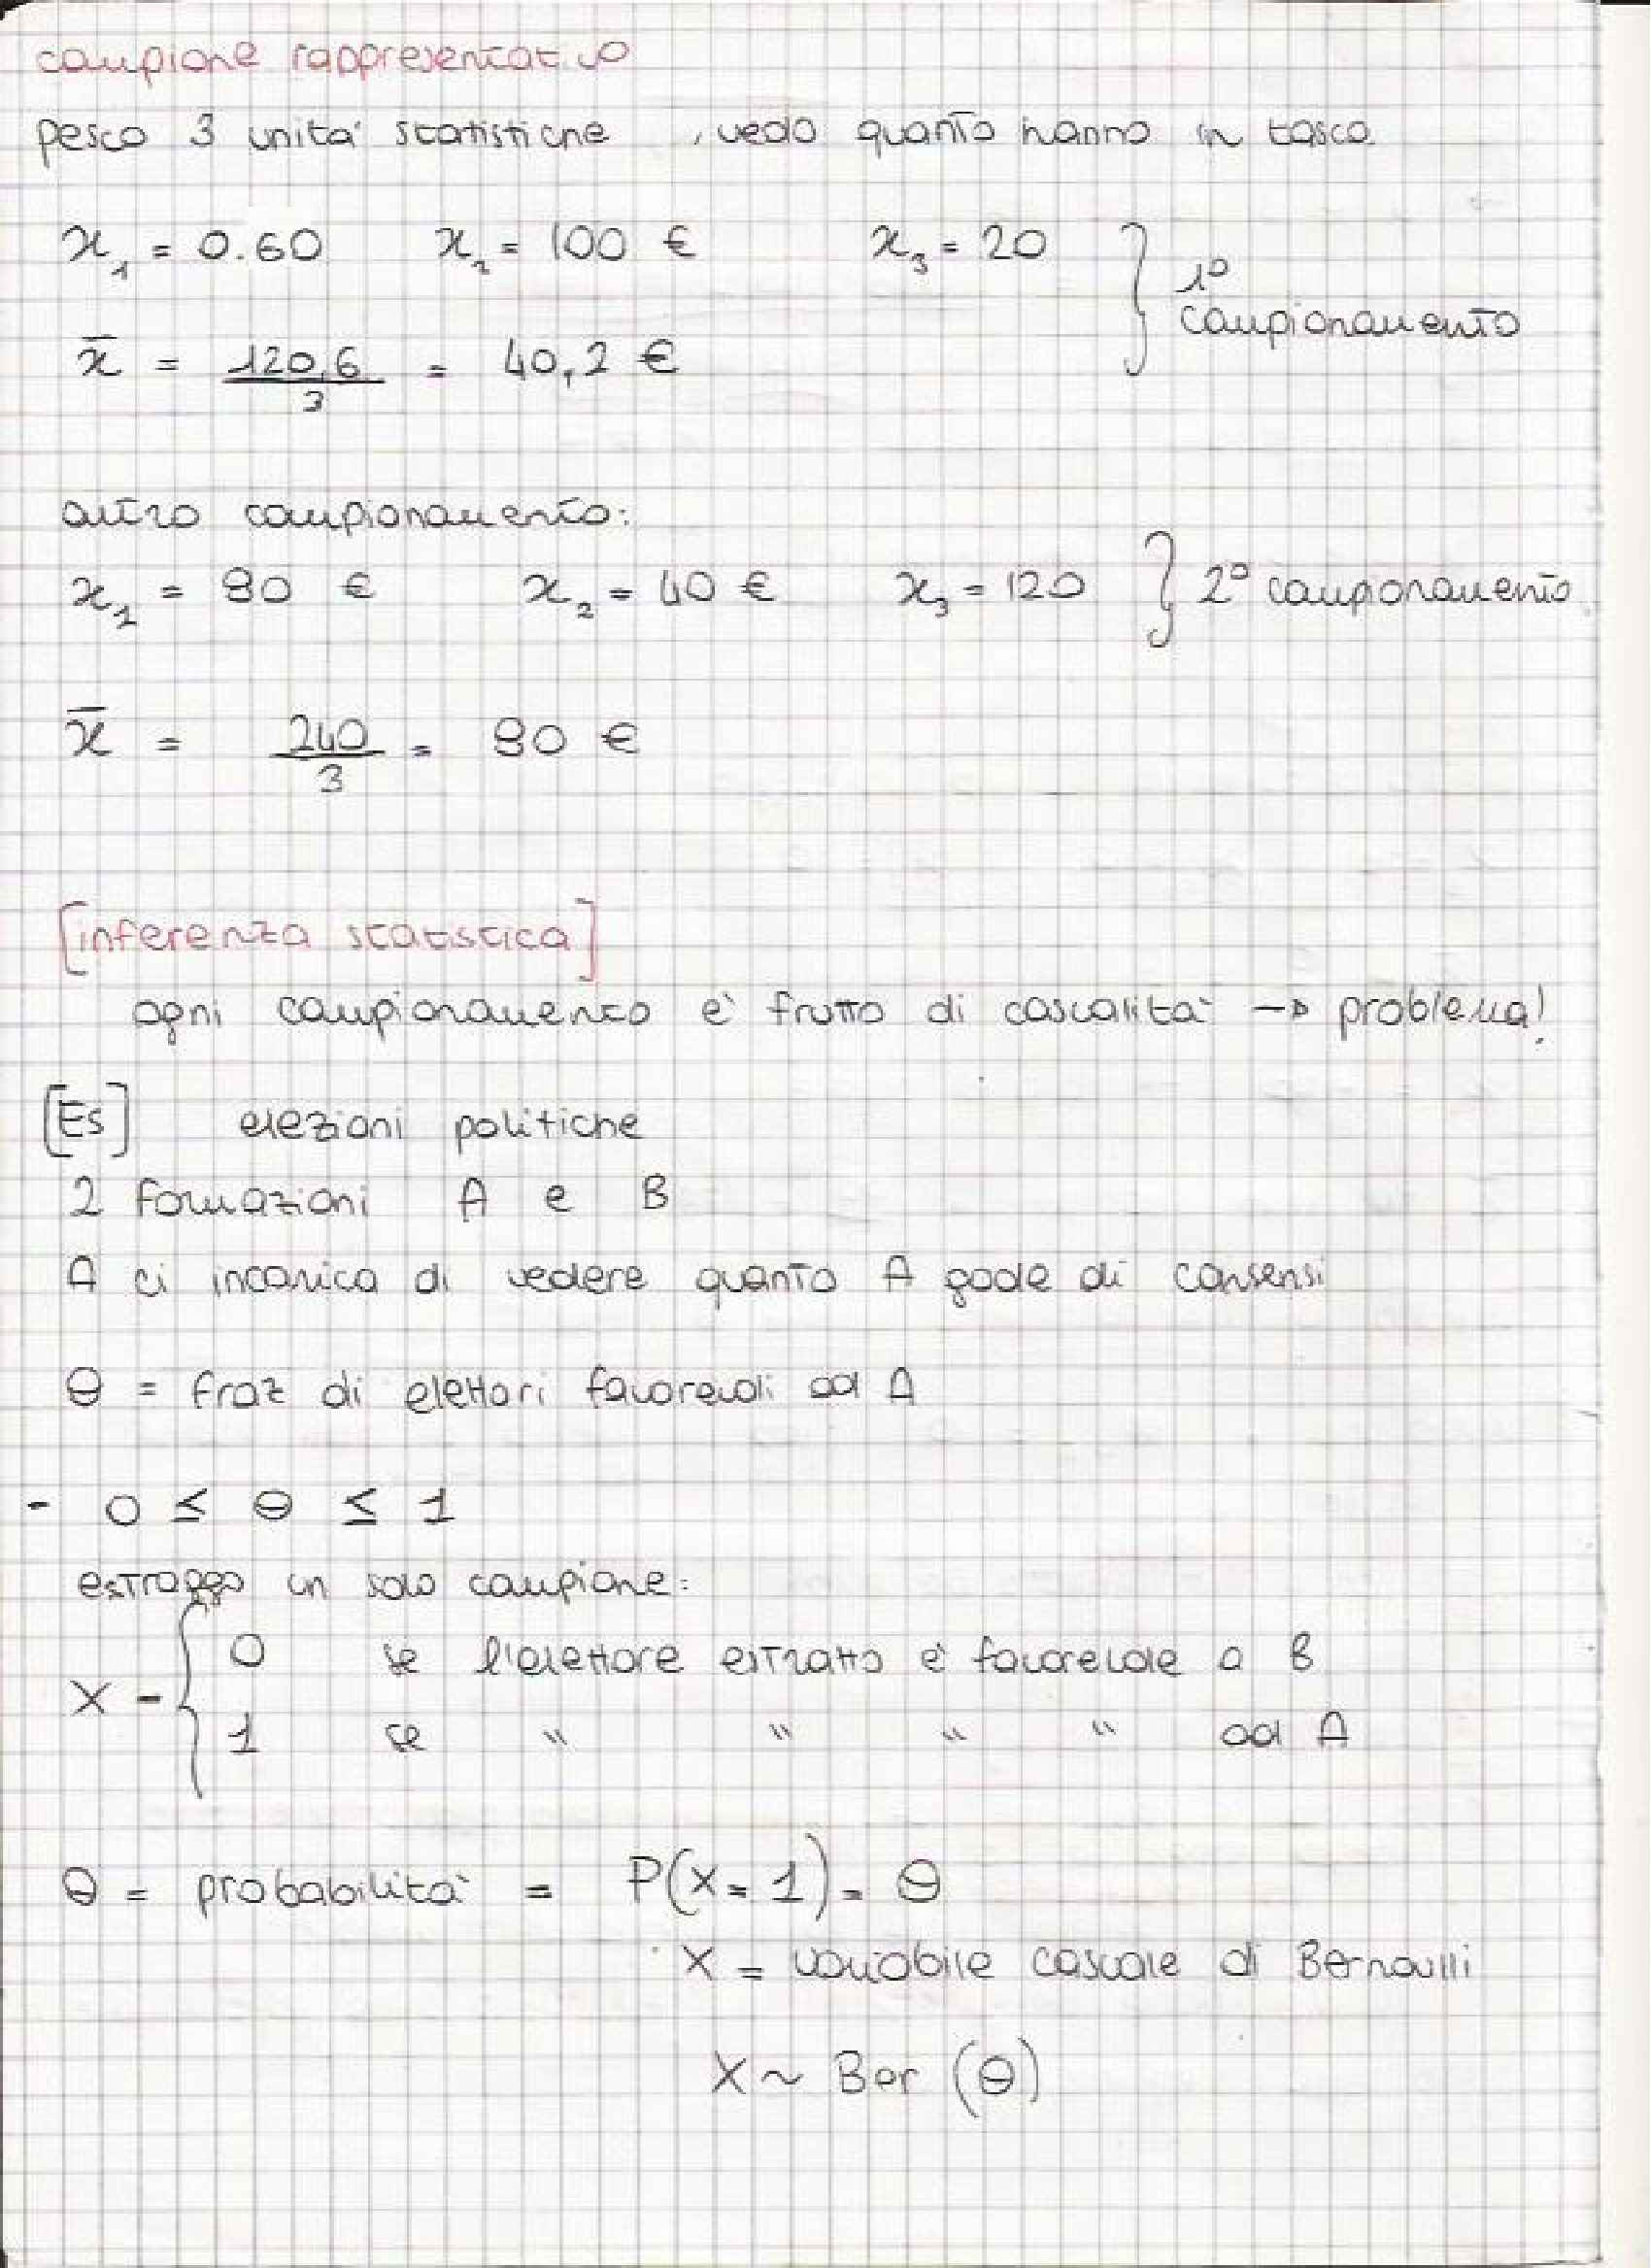 campione rappresentativo
pesco 3 unità statistiche , vedo quanto hanno in tasca
x₁ = 0.60 x₂ = 100 € x₃ = 20 } 1° campionamento
x̄ = 120,6 / 3 = 40,2 €
altro campionamento:
x₁ = 80 € x₂ = 40 € x₃ = 120 } 2° campionamento
x̄ = 240 / 3 = 80 €
[inferenza statistica]
ogni campionamento è frutto di casualità → problema!
[Es] elezioni politiche
2 formazioni A e B
A ci incarica di vedere quanto A gode di consensi
θ = fraz di elettori favorevoli ad A
- 0 ≤ θ ≤ 1
estraggo un solo campione:
X = { 0 se l'elettore estratto è favorevole a B
1 se " " " " ad A
θ = probabilità = P(X = 1) = θ
X = variabile casuale di Bernoulli
X ~ Ber (θ)